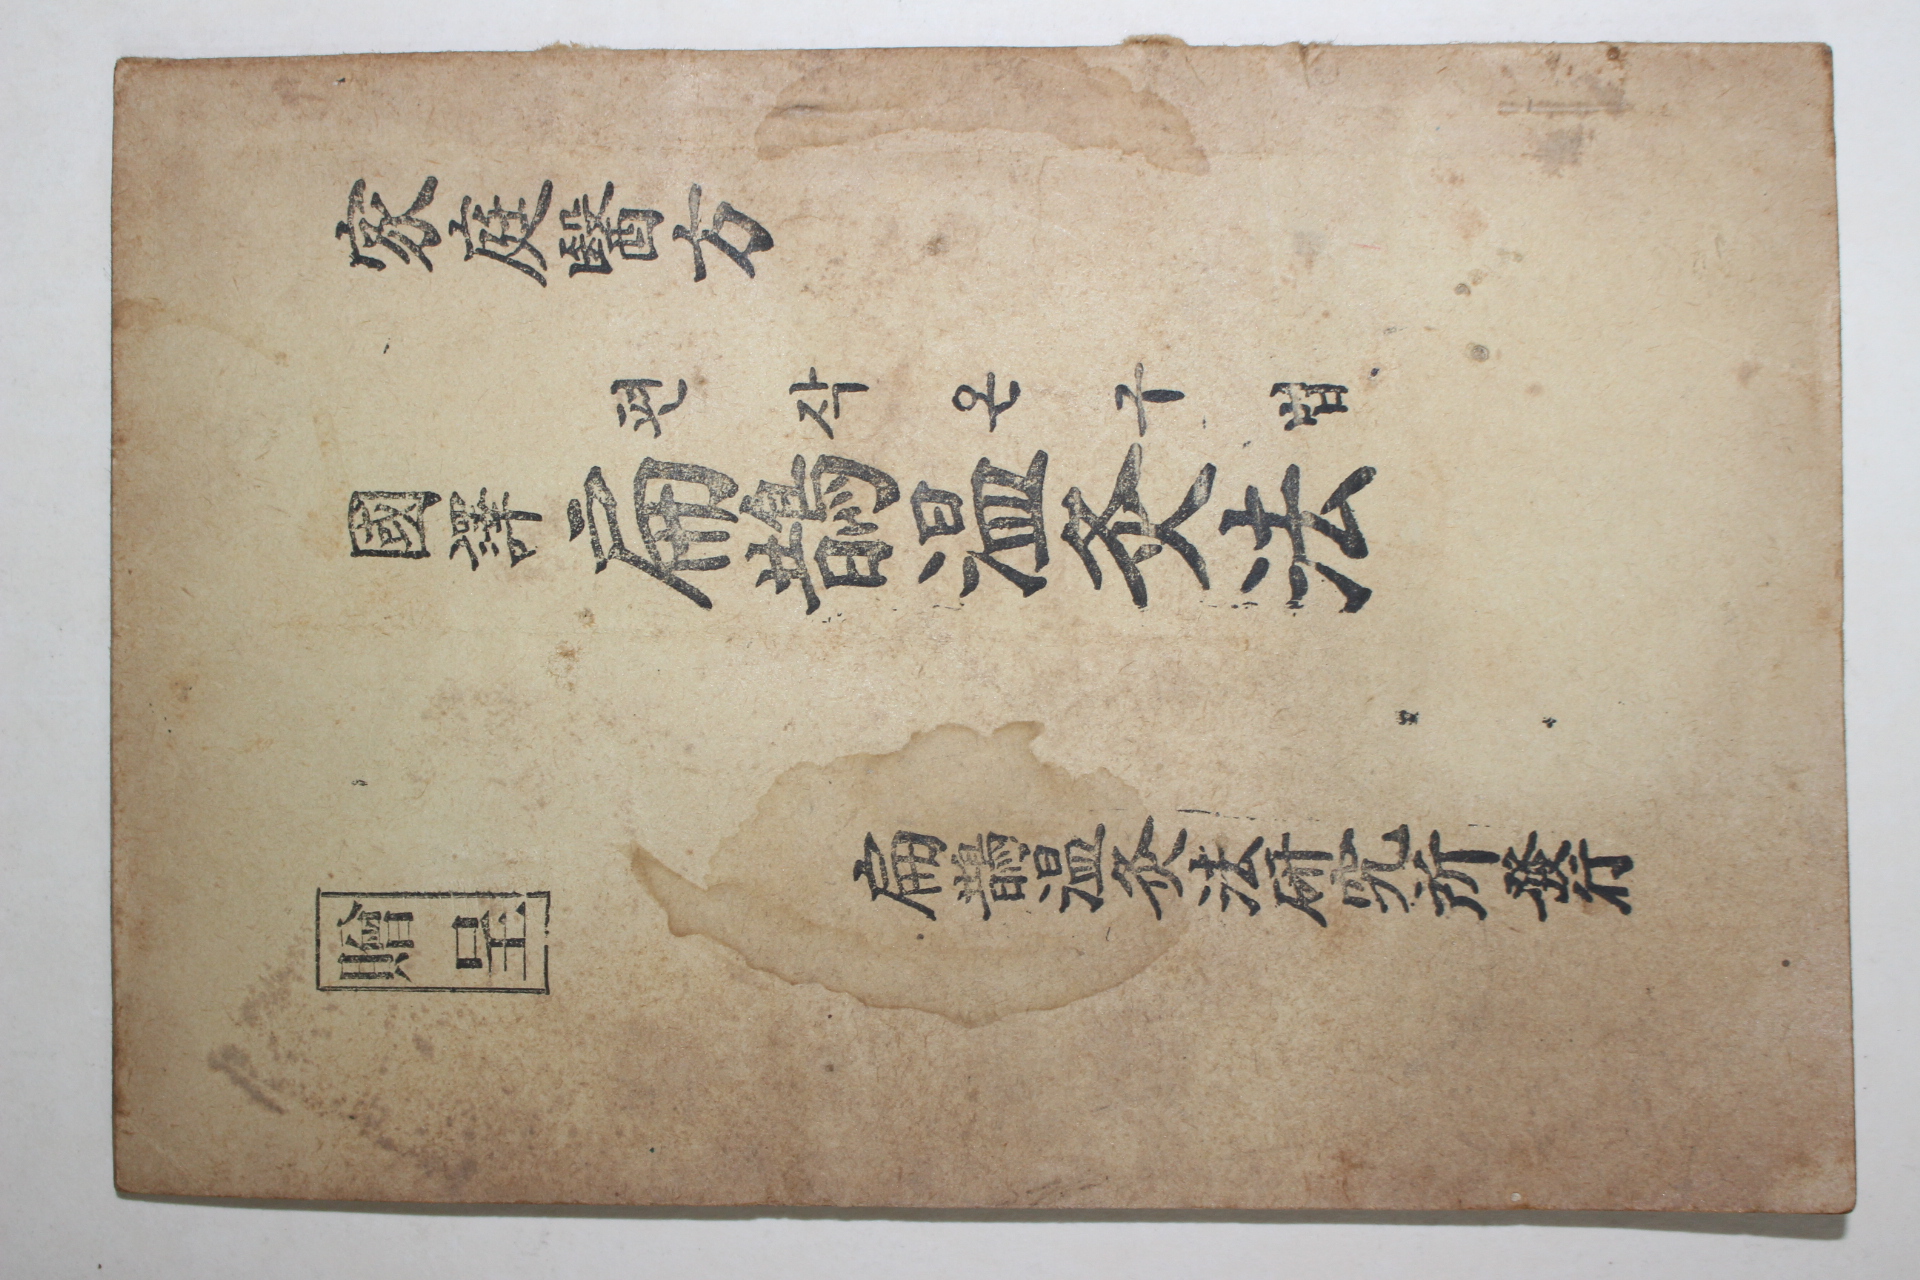 家庭醫方
편작온구법
國譯 扁鵲温灸法
扁鵲温灸法研究所發行
贈呈